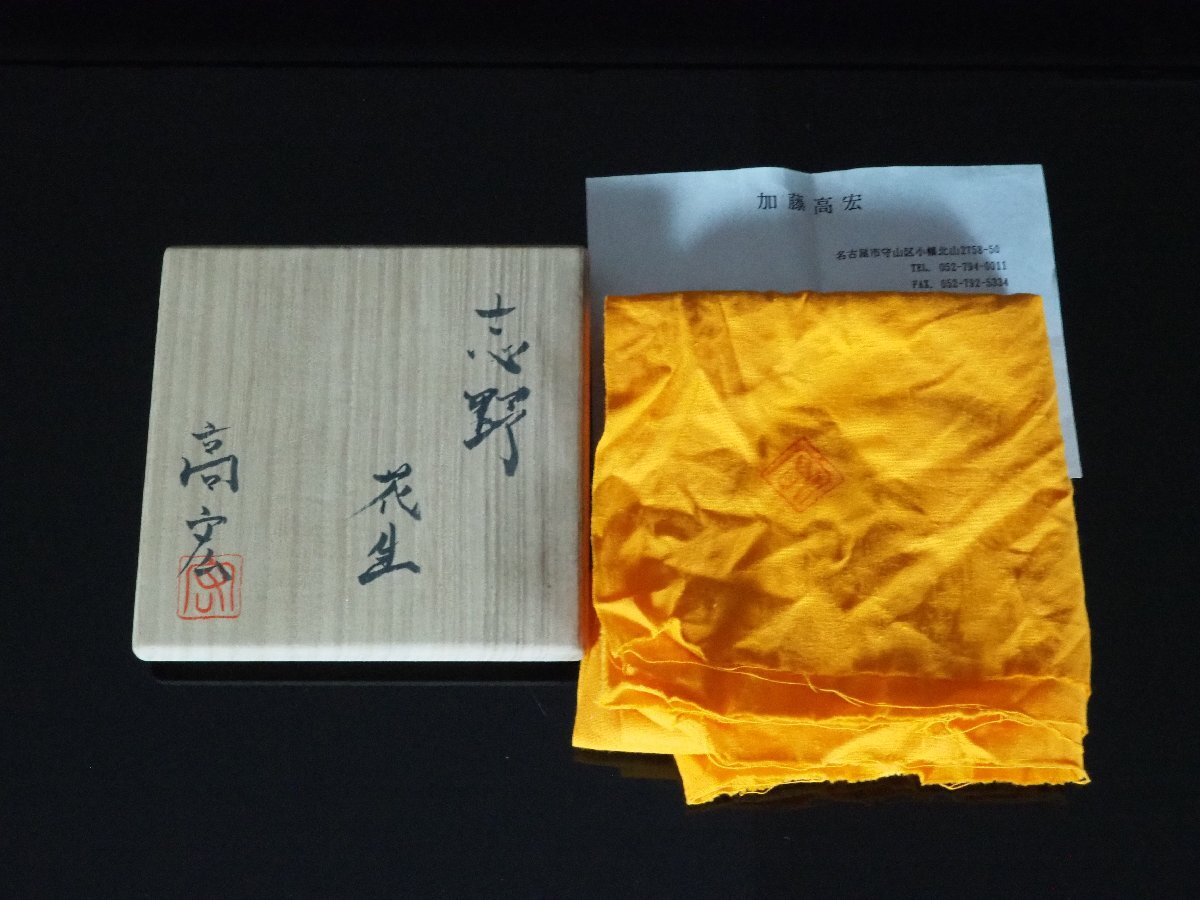 志野
花生
高宏
加藤高宏
名古屋市守山区小幡北山2758-50
TEL. 052-794-0011
FAX. 052-792-5334